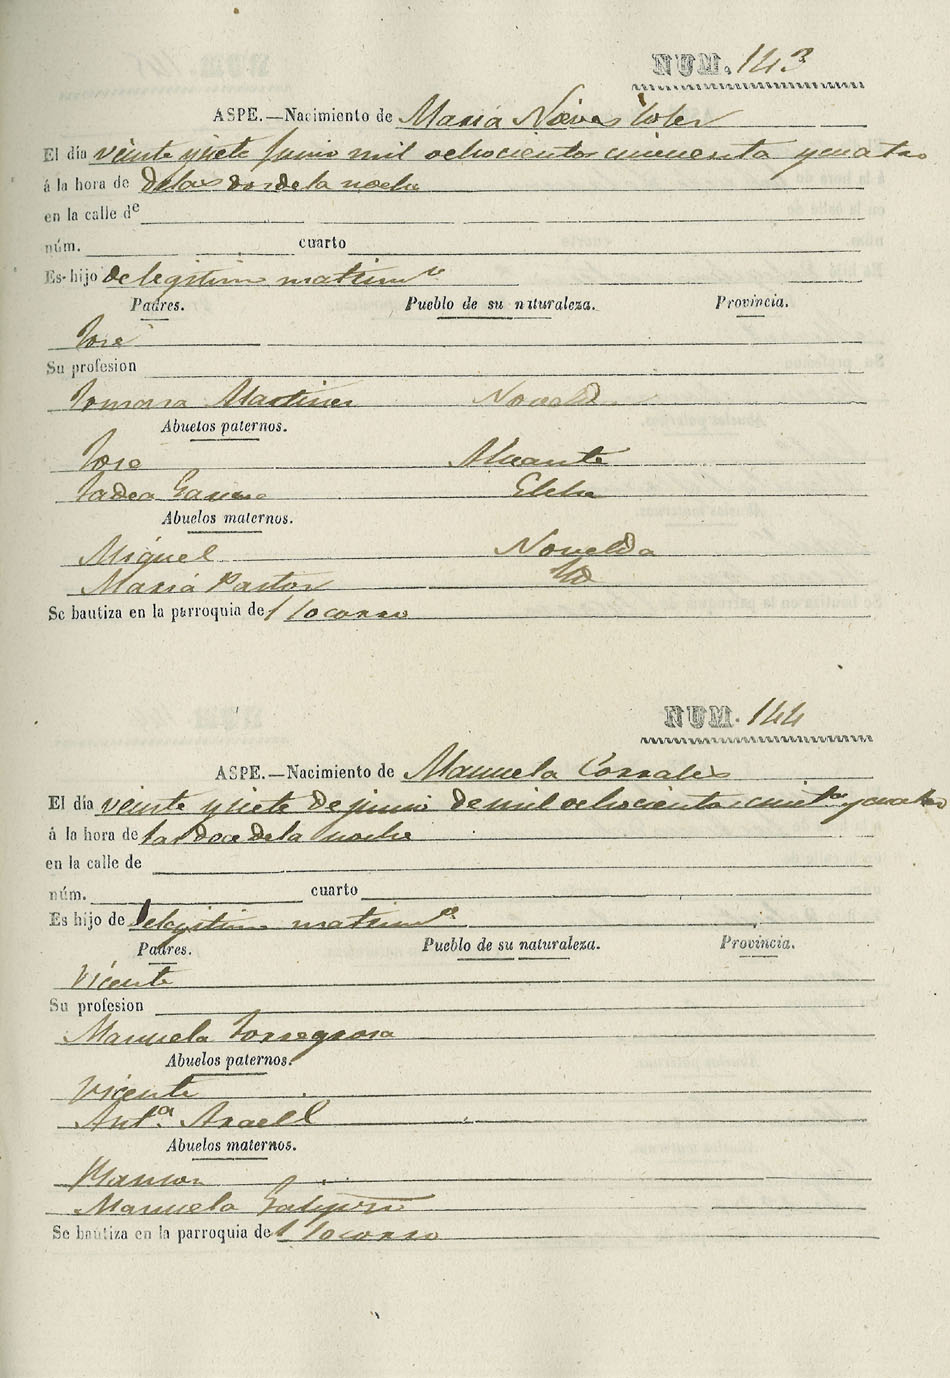 NUM. 143
ASPE.—Nacimiento de María Nieves Soler
El día veinte y siete Junio mil ochocientos cincuenta y cuatro
á la hora de de las dos de la noche
en la calle de
núm. cuarto
Es hijo de legitimo matrimo
Padres. Pueblo de su naturaleza. Provincia.
José
Su profesion
Tomasa Martinez Novelda
Abuelos paternos.
José Alicante
Tadea Elche
Abuelos maternos.
Miguel Novelda
María Pastor Id
Se bautiza en la parroquia del Socorro
NUM. 144
ASPE.—Nacimiento de Manuela Corrales
El día veinte y siete de junio de mil ochocientos cincta y cuatro
á la hora de las doce de la noche
en la calle de
núm. cuarto
Es hijo de legitimo matrimo
Padres. Pueblo de su naturaleza. Provincia.
Vicente
Su profesion
Manuela Torregrosa
Abuelos paternos.
Vicente
Anta.
Abuelos maternos.
Manuela
Se bautiza en la parroquia del Socorro